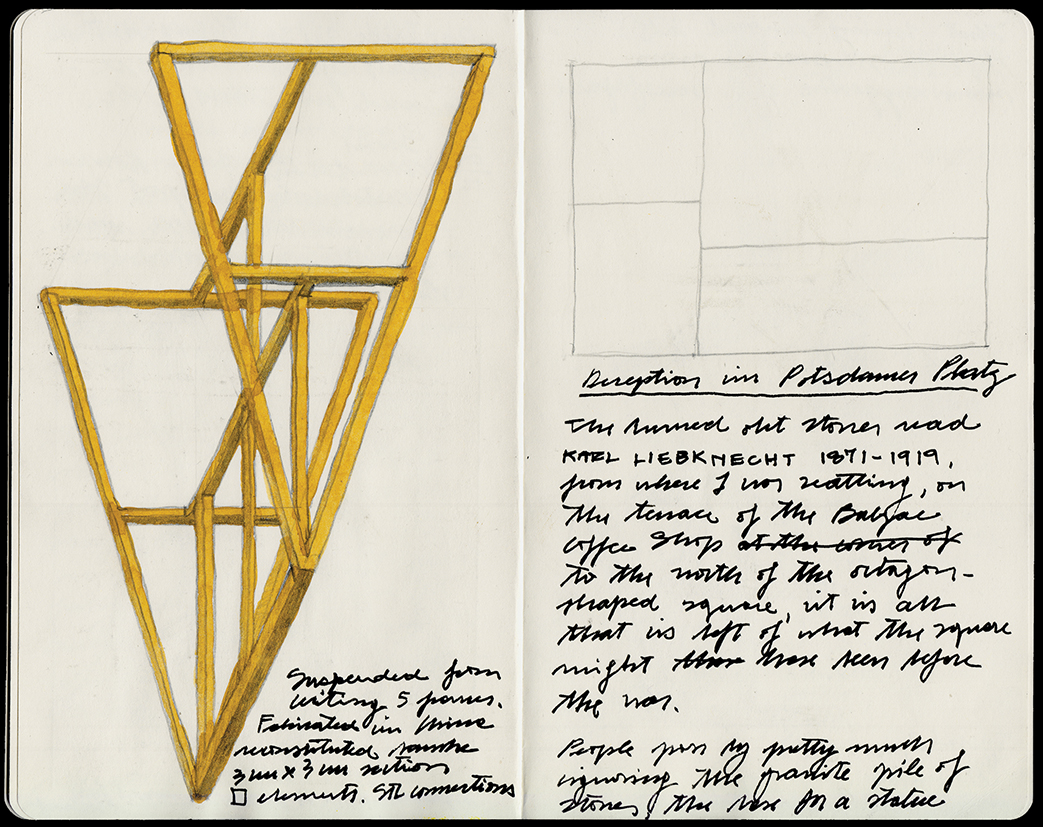 Suspended form
5
Fabricated in China
reconstituted bamboo
3cm x 3cm sections
elements. Stl connections
Deception in Potsdamer Platz
The old stones read
KARL LIEBKNECHT 1871-1919,
from where I was seatting, on
the terrace of the Balzac
Coffee Shop at the corner of
to the north of the octagon-
shaped square, it is all
that is left of what the square
might have been before
the war.
People pass by pretty much
ignoring the granite pile of
stones, the base for a statue